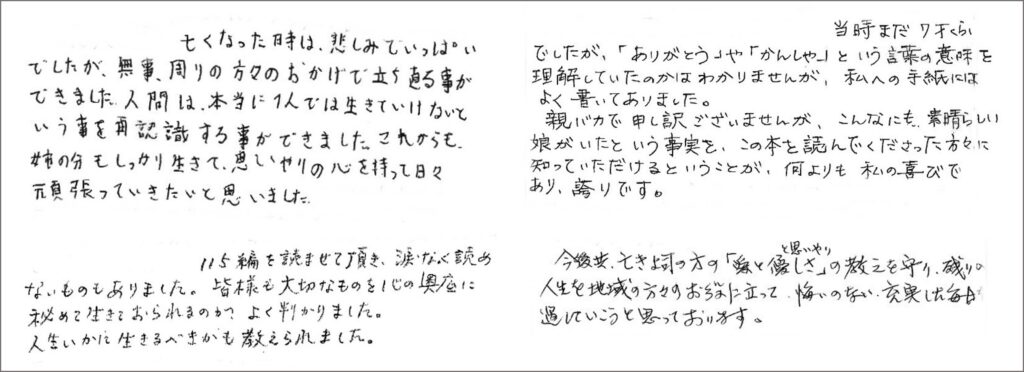 亡くなった時は、悲しみでいっぱい
でしたが、無事、周りの方々のおかげで立ち直る事が
できました。人間は、本当に1人では生きていけないと
いう事を再認識する事ができました。これからも、
姉の分もしっかり生きて、思いやりの心を持って日々
頑張っていきたいと思いました。
当時まだ7才くらい
でしたが、「ありがとう」や「かんしゃ」という言葉の意味を
理解していたのかはわかりませんが、私への手紙には
よく書いてありました。
親バカで申し訳ございませんが、こんなにも素晴らしい
娘がいたという事実を、この本を読んでくださった方々に
知っていただけるということが、何よりも私の喜びで
あり、誇りです。
115編を読ませて頂き、涙なく読め
ないものもありました。皆様も大切なものを心の奥座に
秘めて生きておられるのが、よく判かりました。
人生いかに生きるべきかも教えられました。
と思いやり
今後共、亡き主司の方の「愛と優しさ」の教えを守り、残りの
人生を地域の方々のお役に立って、悔いのない、充実した毎日
過していこうと思っております。